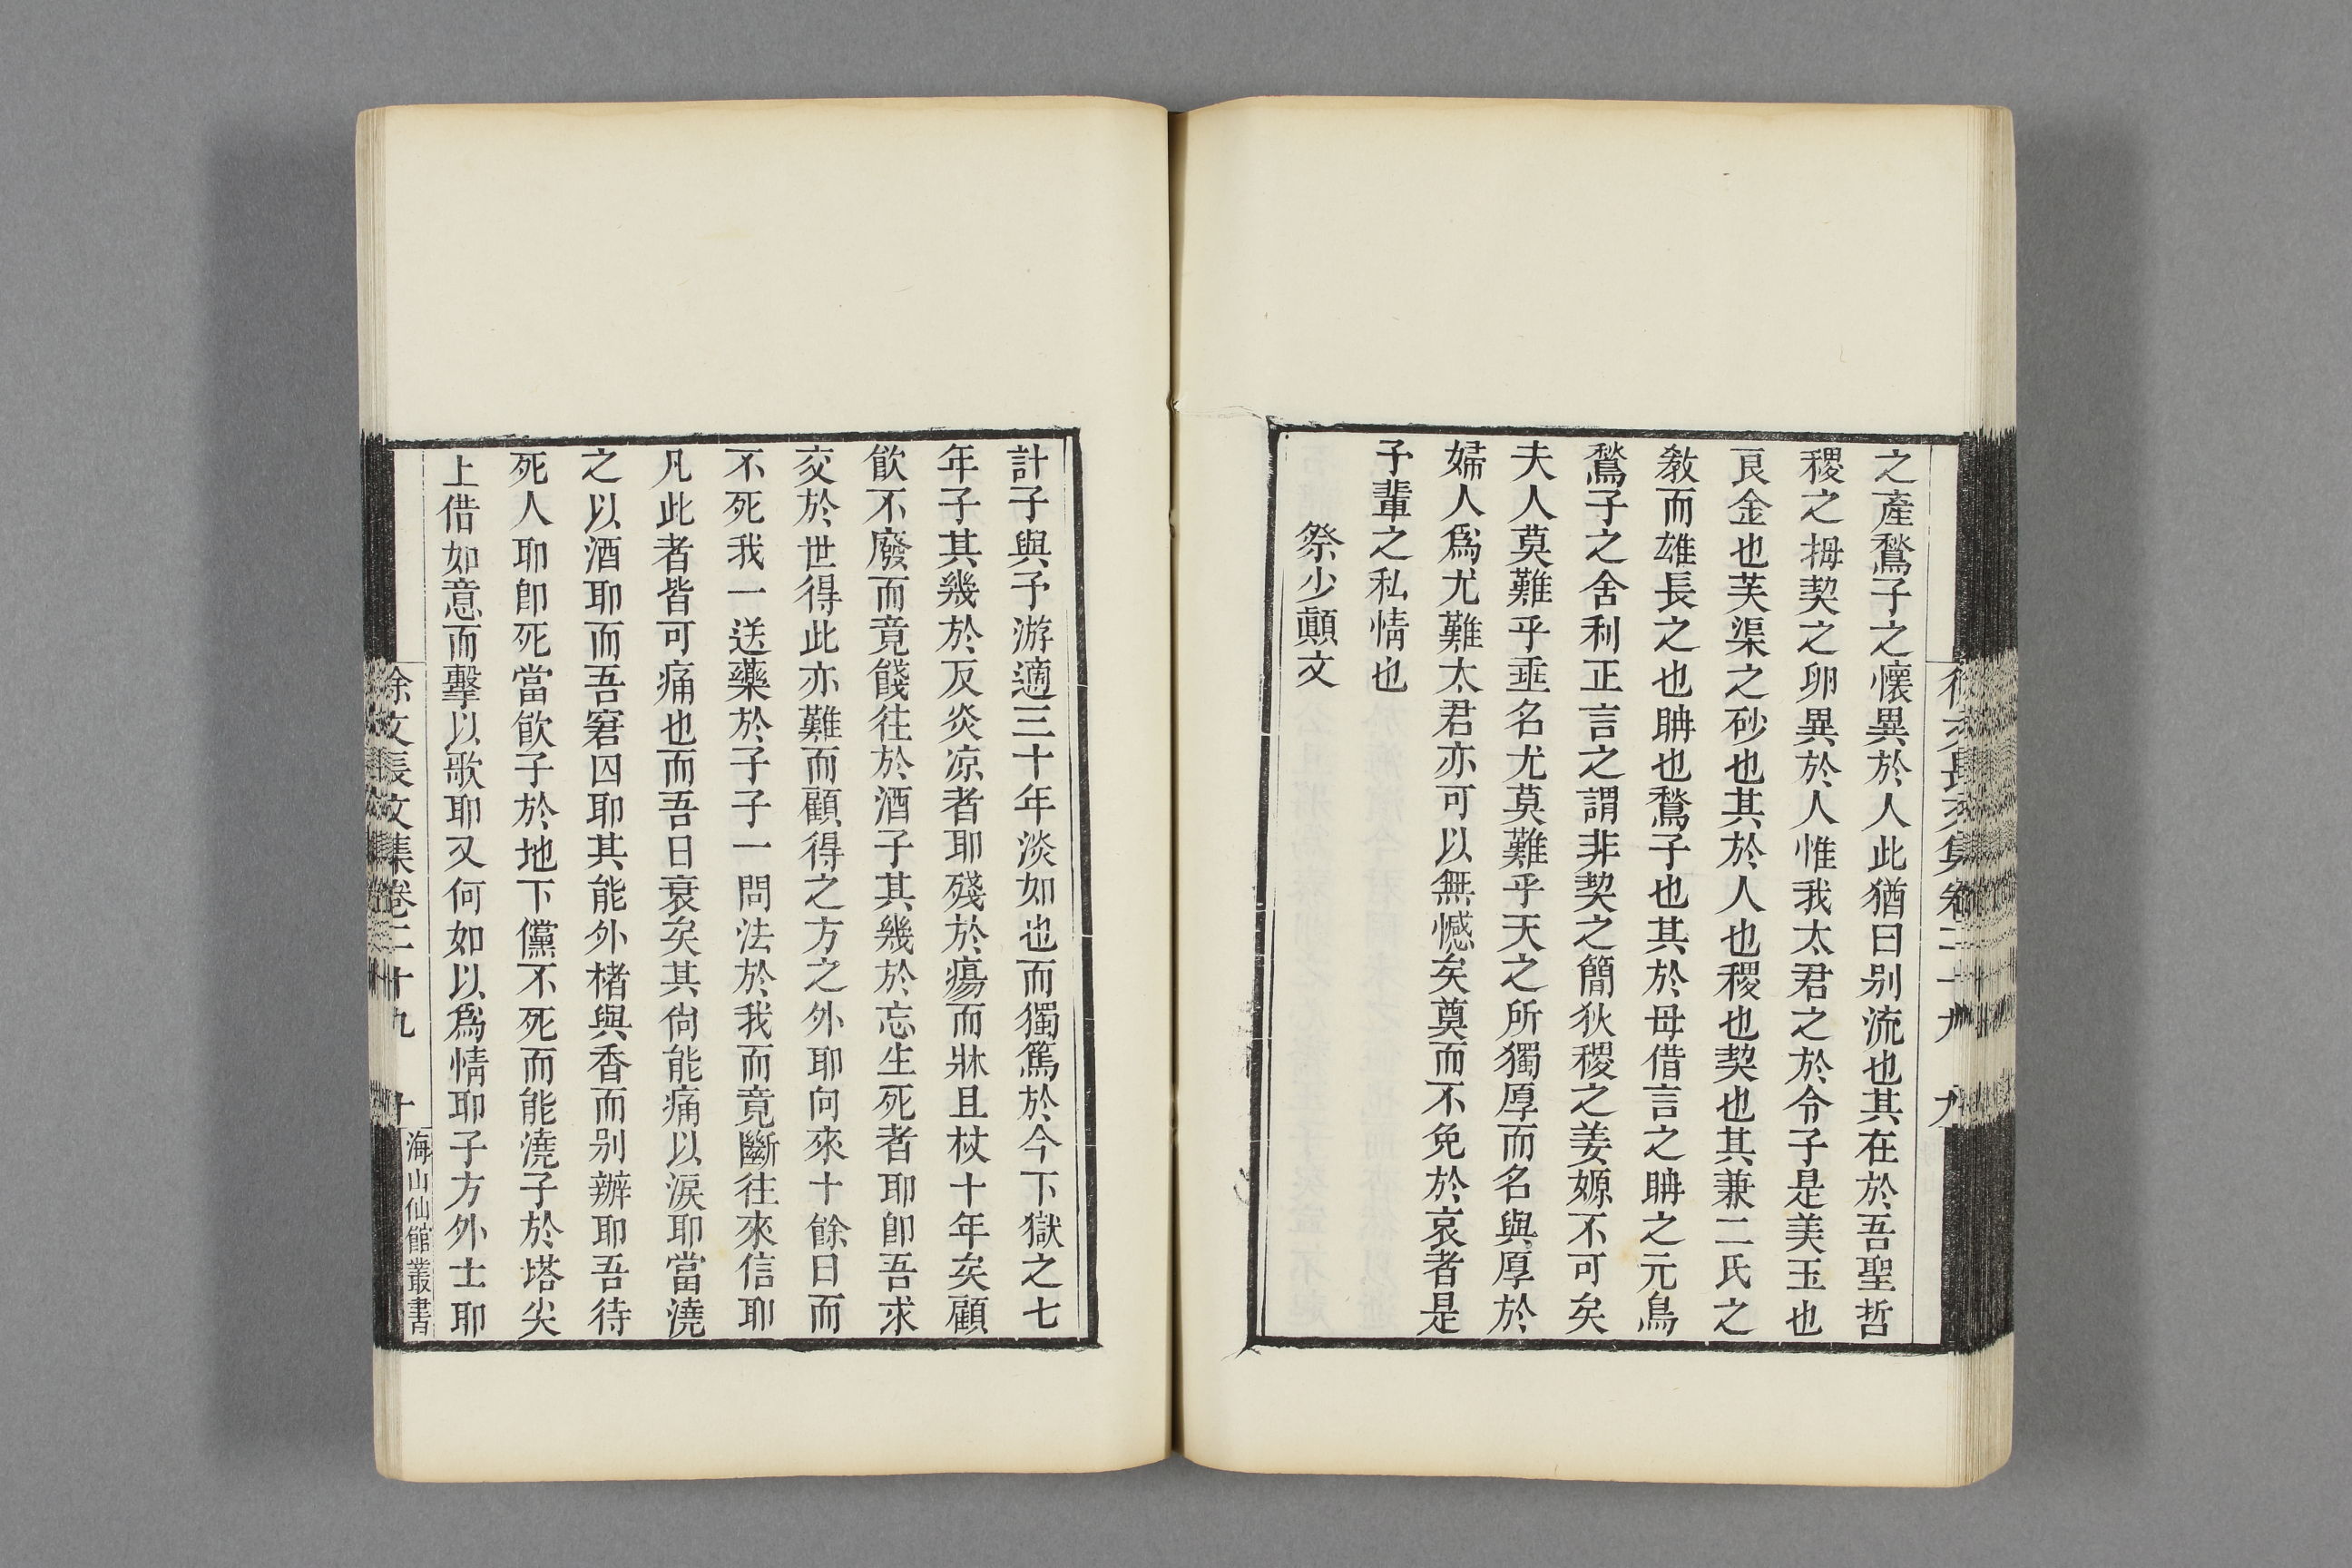 之產鶖子之懷異於人此猶曰别流也其在於吾聖哲
稷之拇契之卵異於人惟我太君之於令子是美玉也
良金也芙渠之砂也其於人也稷也契也其兼二氏之
教而雄長之也聃也鶖子也其於母借言之聃之元鳥
鶖子之舍利正言之謂非契之簡狄稷之姜嫄不可矣
夫人莫難乎垂名尤莫難乎天之所獨厚而名與厚於
婦人爲尤難太君亦可以無憾矣奠而不免於哀者是
予輩之私情也
祭少顛文
計子與予游適三十年淡如也而獨篤於今下獄之七
年子其幾於反炎凉者耶殘於瘍而牀且杖十年矣顧
飮不廢而竟餞往於酒子其幾於忘生死者耶卽吾求
交於世得此亦難而顧得之方之外耶向來十餘日而
不死我一送藥於子子一問法於我而竟斷往來信耶
凡此者皆可痛也而吾日衰矣其尙能痛以淚耶當澆
之以酒耶而吾窘囚耶其能外楮與香而别辦耶吾待
死人耶卽死當飮子於地下儻不死而能澆子於塔尖
上借如意而擊以歌耶又何如以爲情耶子方外士耶
徐文長文集卷二十九 十
海山仙館叢書